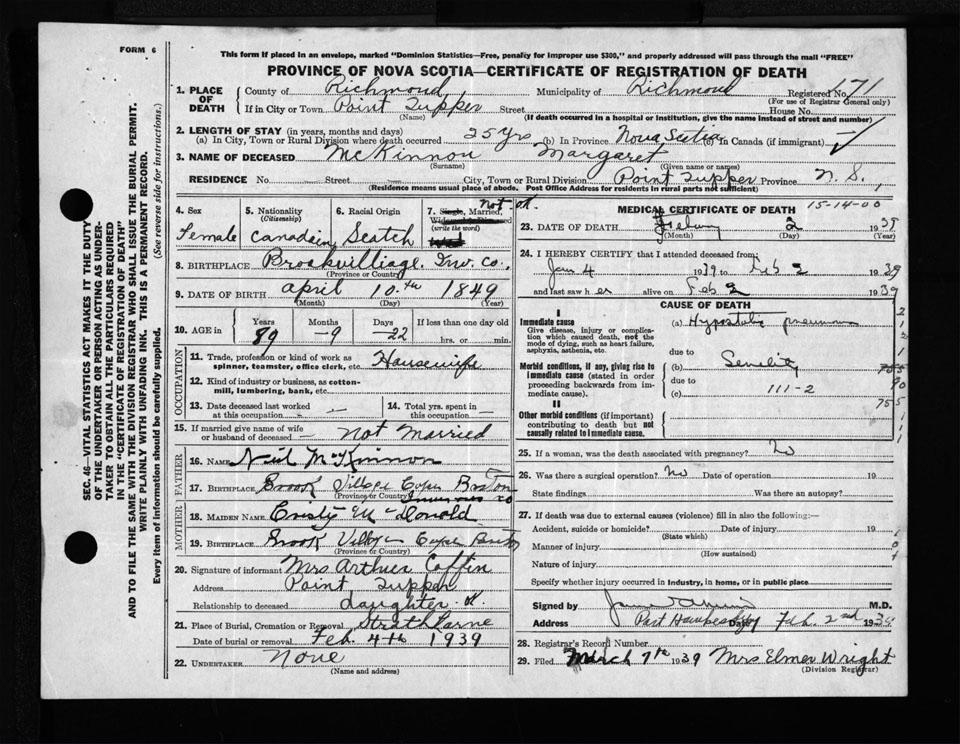 FORM 6
This form if placed in an envelope, marked "Dominion Statistics—Free, penalty for improper use $300," and properly addressed will pass through the mail "FREE"
PROVINCE OF NOVA SCOTIA—CERTIFICATE OF REGISTRATION OF DEATH
1. PLACE OF DEATH
County of Richmond Municipality of Richmond Registered No. 171
(For use of Registrar General only)
If in City or Town Point Tupper Street House No.
(Name) (If death occurred in a hospital or institution, give the name instead of street and number)
2. LENGTH OF STAY (in years, months and days)
(a) In City, Town or Rural Division where death occurred 25 yrs (b) In Province Nova Scotia (c) In Canada (if immigrant)
3. NAME OF DECEASED McKinnon Margaret
(Surname) (Given name or names)
RESIDENCE No. Street City, Town or Rural Division Point Tupper Province N. S.
(Residence means usual place of abode. Post Office Address for residents in rural parts not sufficient)
4. Sex
Female
5. Nationality
(Citizenship)
Canadian
6. Racial Origin
Scotch
7. Single, Married,
Widowed or Divorced
(write the word)
not ok.
8. BIRTHPLACE Brookvilliage. Inv. Co.,
(Province or Country)
9. DATE OF BIRTH april 10.th 1849
(Month) (Day) (Year)
10. AGE in
Years Months Days If less than one day old
89 -9 22 hrs. or min.
OCCUPATION
11. Trade, profession or kind of work as
spinner, teamster, office clerk, etc. Housewife
12. Kind of industry or business, as cotton-
mill, lumbering, bank, etc.
13. Date deceased last worked
at this occupation
14. Total yrs. spent in
this occupation
15. If married give name of wife
or husband of deceased — Not Married
FATHER
16. Name Neil McKinnon
17. Birthplace Brook Village Cape Breton
(Province or Country) Inverness co
MOTHER
18. Maiden Name Cristy McDonald
19. Birthplace Brook Village Cape Breton
(Province or Country)
20. Signature of informant Mrs Arthur Coffin
Address Point Tupper
Relationship to deceased daughter. ok
21. Place of Burial, Cremation or Removal Strathlorne
Date of burial or removal Feb. 4th 1939
22. UNDERTAKER None
(Name and address)
MEDICAL CERTIFICATE OF DEATH 15-14-00
23. DATE OF DEATH 2 1939
(Month) (Day) (Year)
24. I HEREBY CERTIFY that I attended deceased from:
Jan 4 1939 to Feb 2 1939
and last saw her alive on Feb 2 1939
CAUSE OF DEATH
I
Immediate cause
Give disease, injury or complica-
tion which caused death, not the
mode of dying, such as heart failure,
asphyxia, asthenia, etc.
(a) Hypostatic pneumonia
due to
Morbid conditions, if any, giving rise to
immediate cause (stated in order
proceeding backwards from im-
mediate cause).
(b) Senility
due to
(c) 111-2
II
Other morbid conditions (if important)
contributing to death but not
causally related to immediate cause.
25. If a woman, was the death associated with pregnancy? No
26. Was there a surgical operation? No Date of operation 19
State findings Was there an autopsy?
27. If death was due to external causes (violence) fill in also the following:—
Accident, suicide or homicide? Date of injury 19
(State which)
Manner of injury
(How sustained)
Nature of injury
Specify whether injury occurred in industry, in home, or in public place
Signed by M.D.
Address Port Hawkesbury Date Feb. 2nd 1939
28. Registrar's Record Number
29. Filed March 7th 1939 Mrs Elmer Wright
(Division Registrar)
SEC. 46—VITAL STATISTICS ACT MAKES IT THE DUTY
OF THE UNDERTAKER OR PERSON ACTING AS UNDER-
TAKER TO OBTAIN ALL THE PARTICULARS REQUIRED
IN THE "CERTIFICATE OF REGISTRATION OF DEATH"
AND TO FILE THE SAME WITH THE DIVISION REGISTRAR WHO SHALL ISSUE THE BURIAL PERMIT.
WRITE PLAINLY WITH UNFADING INK. THIS IS A PERMANENT RECORD.
Every item of information should be carefully supplied. (See reverse side for instructions.)